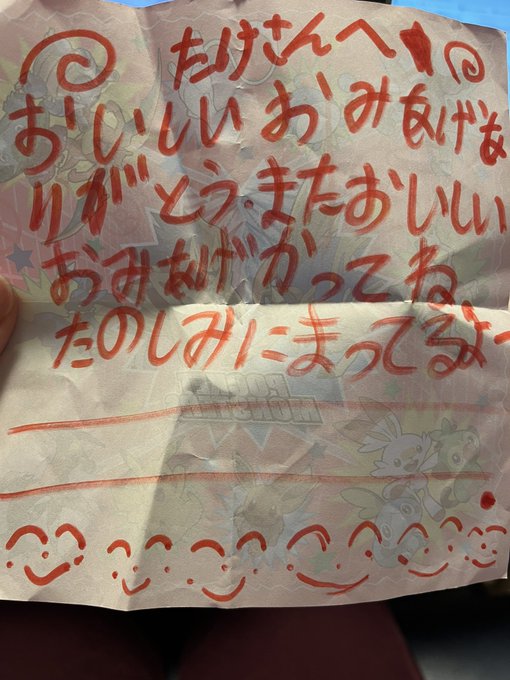 たけさんへ
おいしいおみあげあ
りがとうまたおいしい
おみあげかってね
たのしみにまってるよー